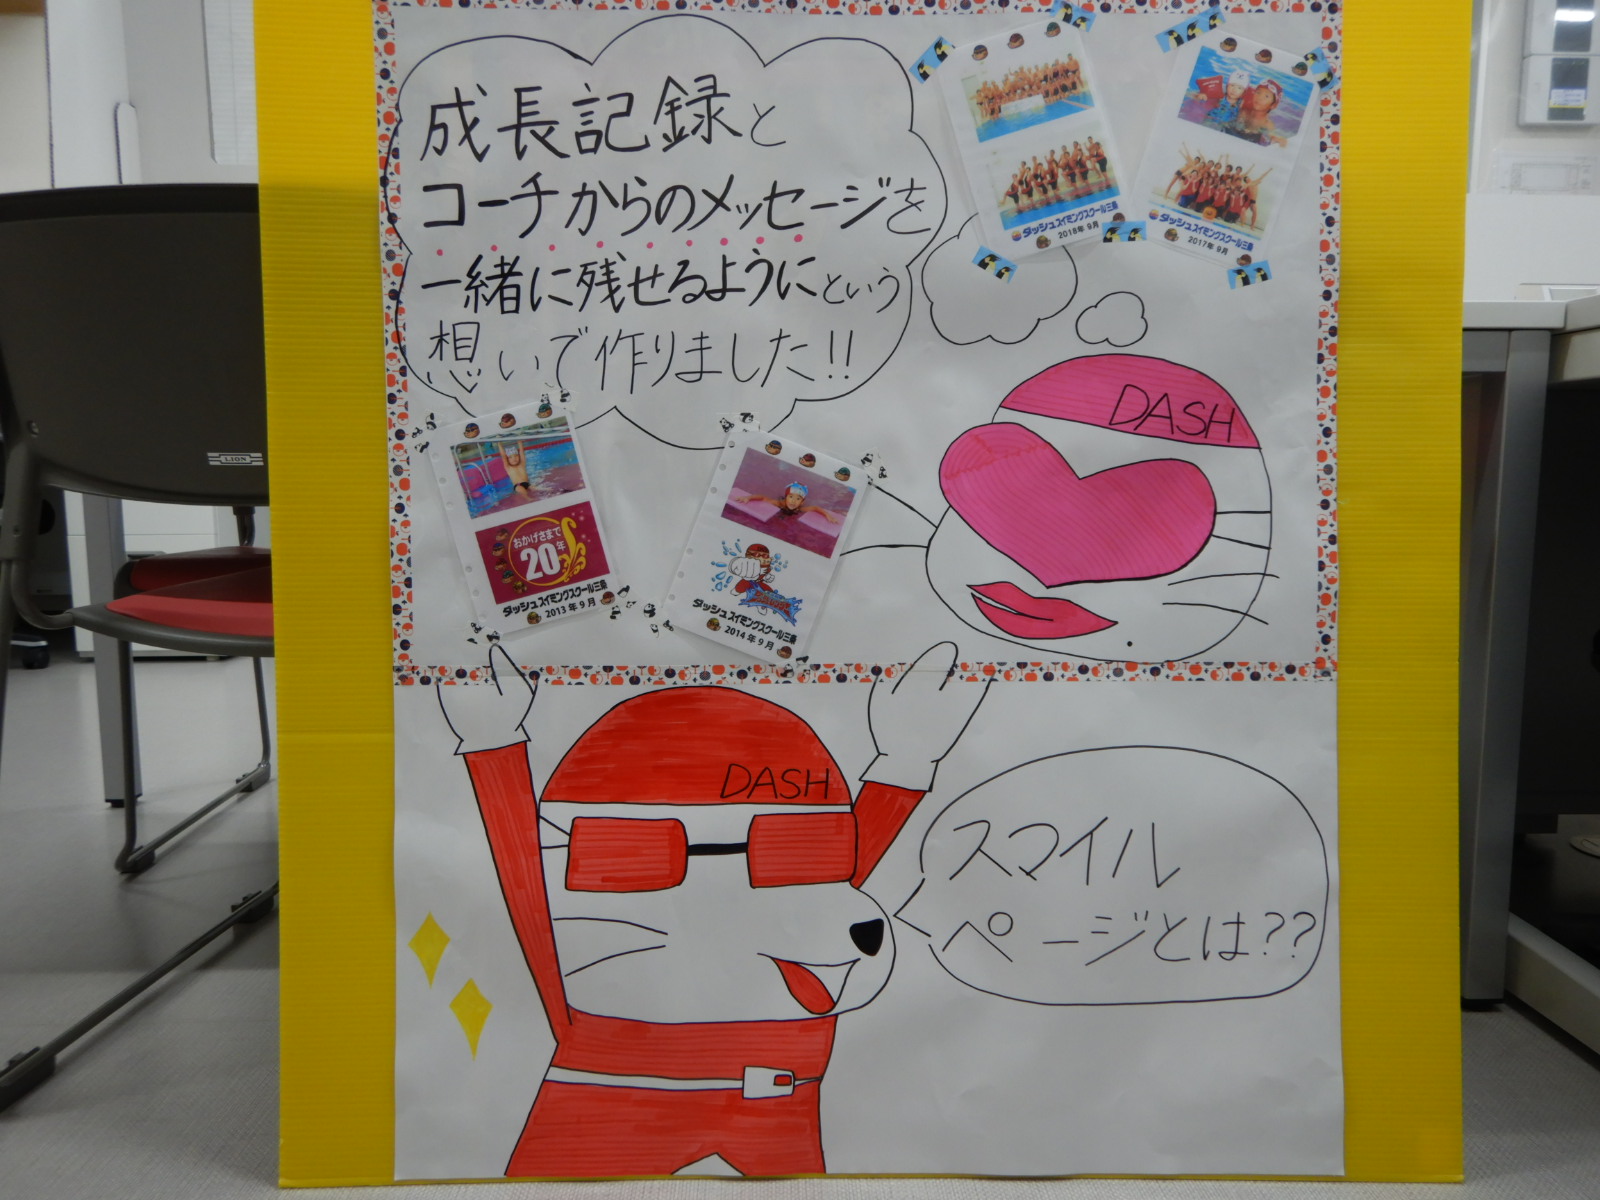 成長記録と
コーチからのメッセージを
一緒に残せるようにという
想いで作りました!!
ダッシュスイミングスクール三条
2018年9月
ダッシュスイミングスクール三条
2017年9月
DASH
LION
おかげさまで
20年
ダッシュスイミングスクール三条
2013年9月
ダッシュスイミングスクール三条
2014年9月
DASH
スマイル
ページとは??